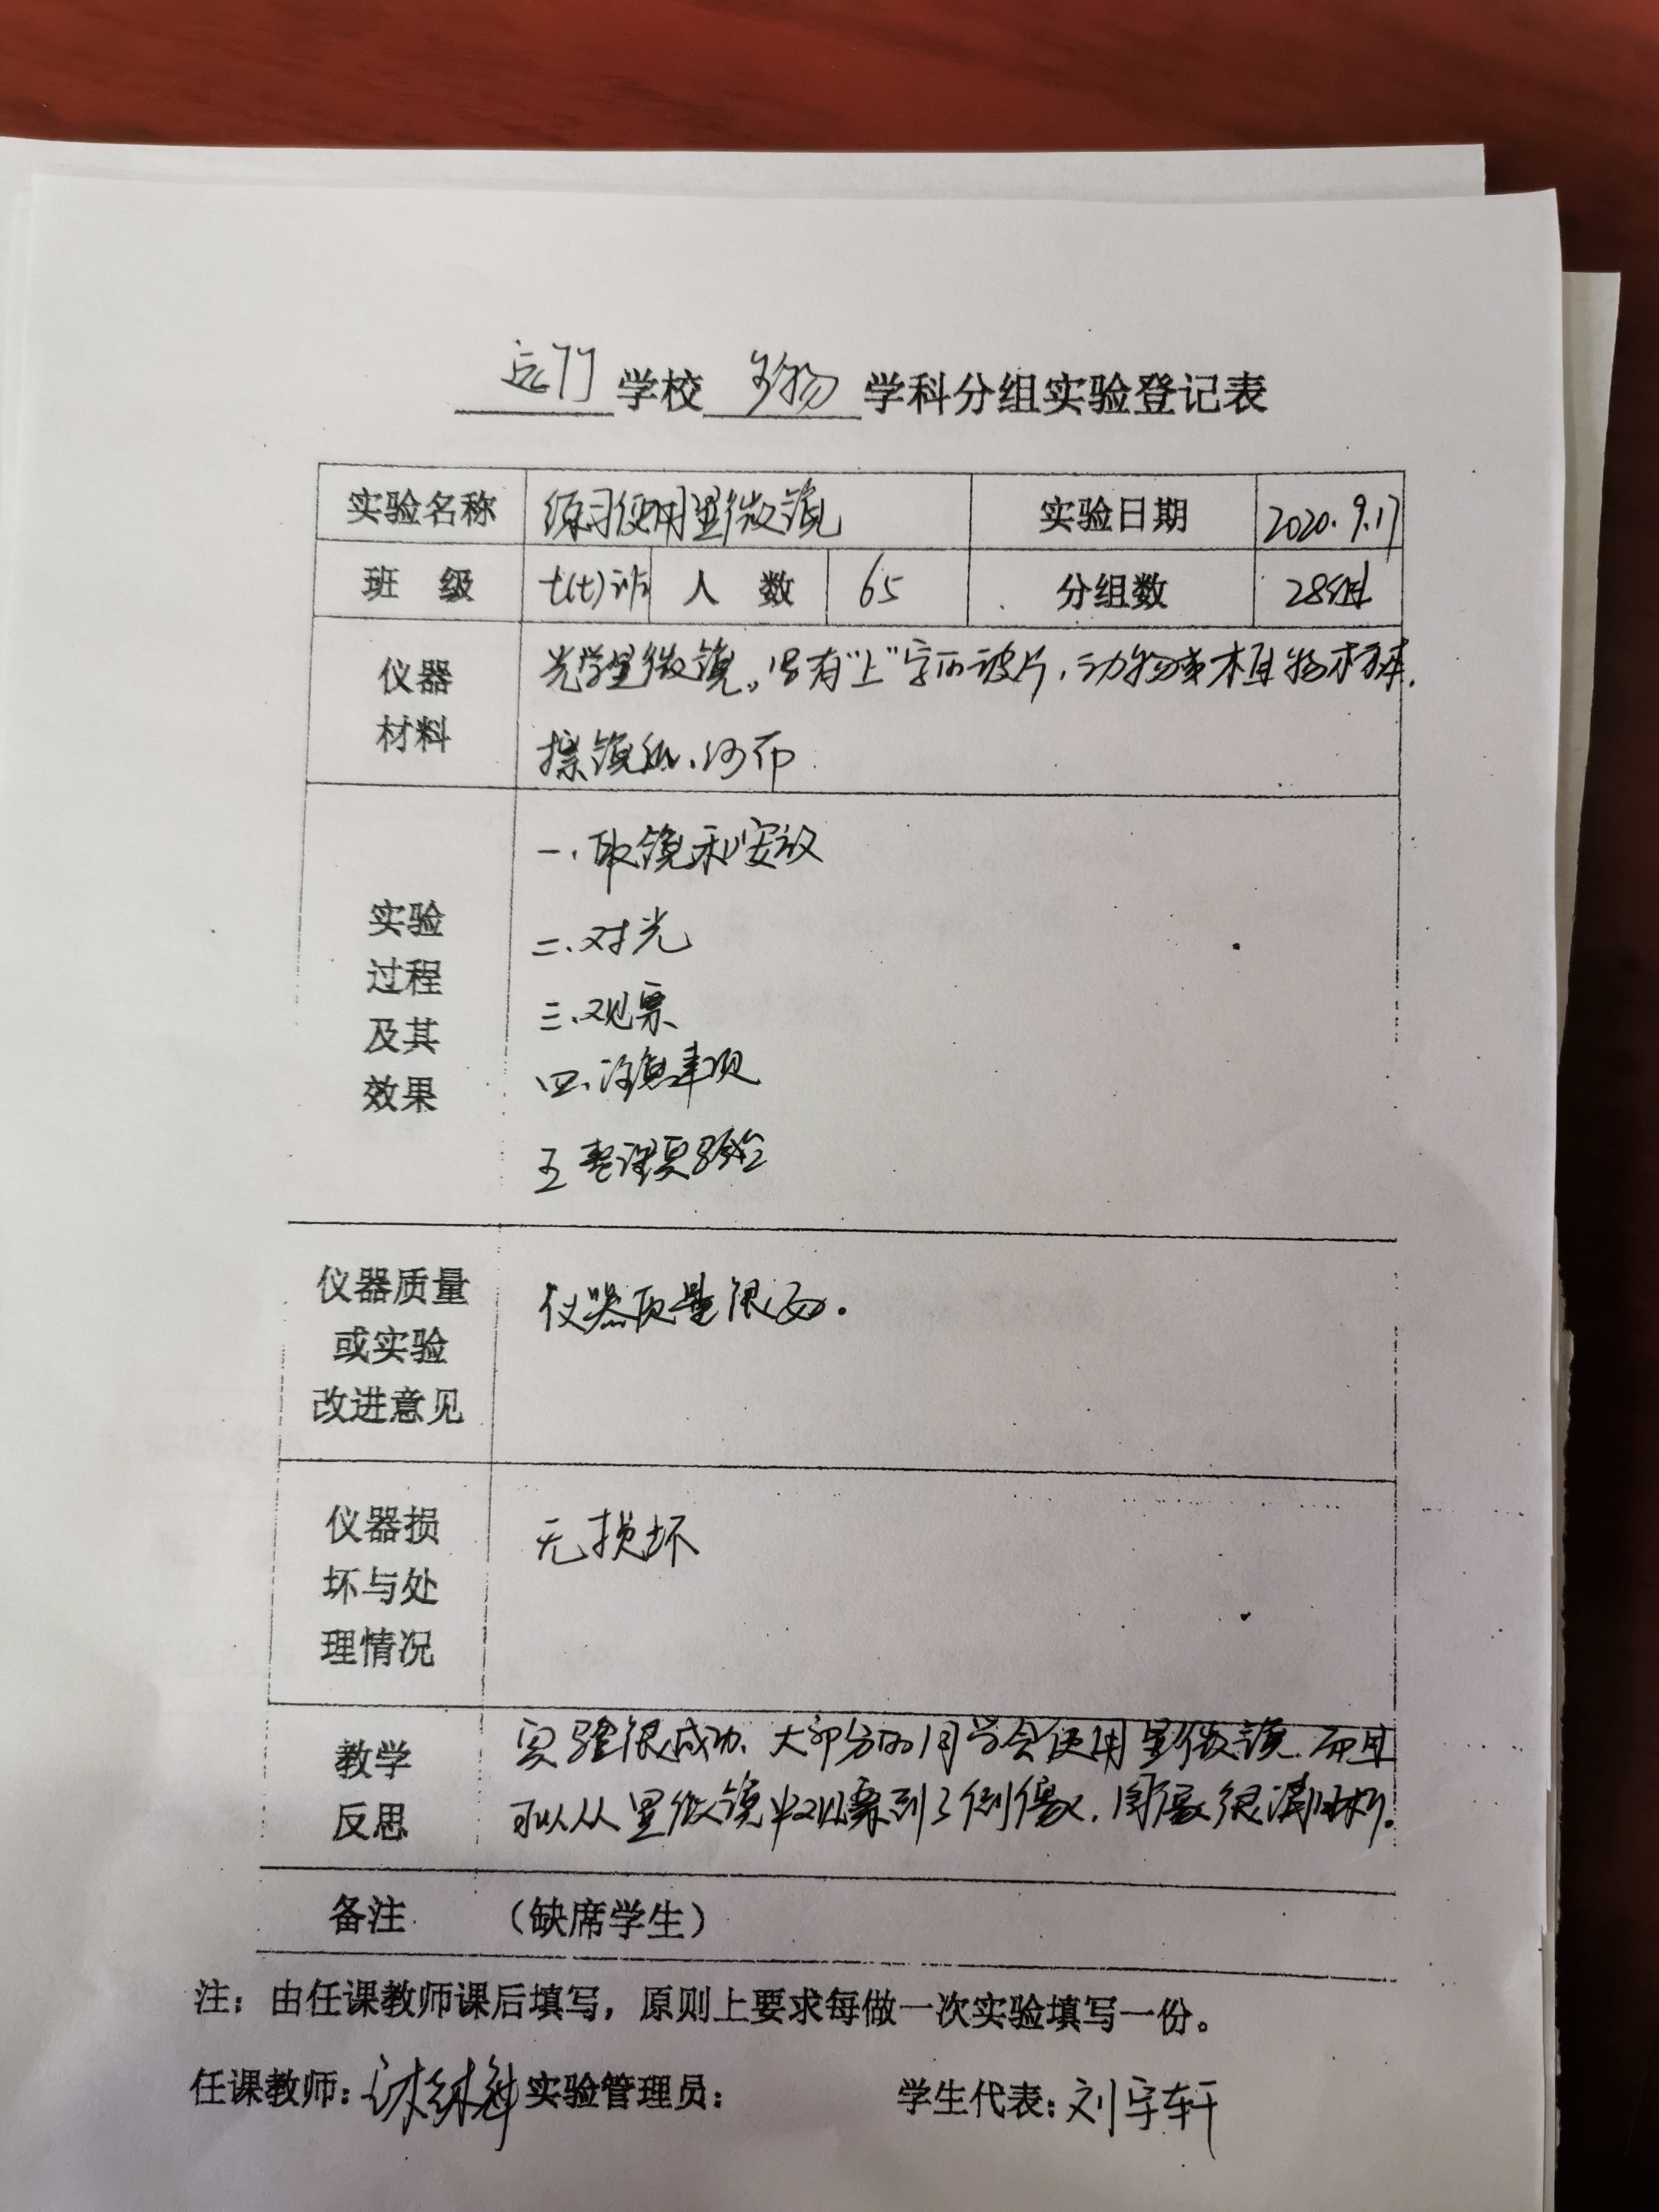 远门学校生物学科分组实验登记表
实验名称 练习使用显微镜 实验日期 2020.9.17
班 级 七(七)班 人 数 65 分组数 28组
仪器 光学显微镜。写有“上”字的玻片、动物或植物标本.
材料 擦镜纸、纱布
一、取镜和安放
实验 二、对光
过程 三、观察
及其 四、注意事项
效果 五 整理实验
仪器质量 仪器质量很好.
或实验
改进意见
仪器损 无损坏
坏与处
理情况
教学 实验很成功、大部分的同学会使用显微镜.而且
反思 可以从显微镜中观察到了倒像.图像很清晰.
备注 (缺席学生)
注:由任课教师课后填写,原则上要求每做一次实验填写一份。
任课教师: 实验管理员: 学生代表:刘宇轩